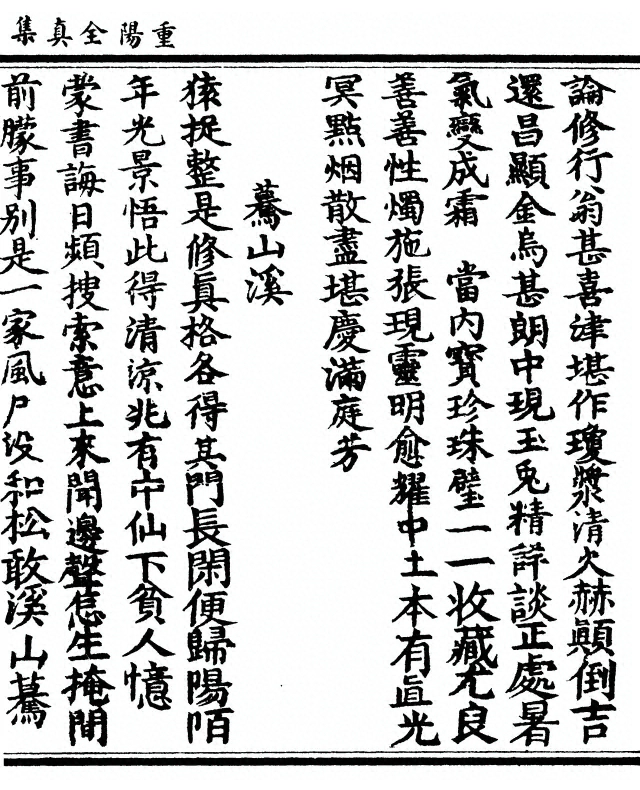 重陽全真集
論修行翁甚喜津堪作瓊漿清火赫顛倒吉
還昌顯金烏甚朗中現玉兎精詳談正處暑
氣變成霜　當内寳珍珠璧一一收藏尤良
善善性燭施張現靈明愈耀中土本有眞光
冥點烟散盡堪慶滿庭芳
驀山溪
猿捉整是修眞格各得其門長閑便歸陽陌
年光景悟此得清涼兆有中仙下貧人憶
蒙書誨日頻搜索意上來聞邊聲怎生掩間
前朦事別是一家風尸没和松敢溪山驀